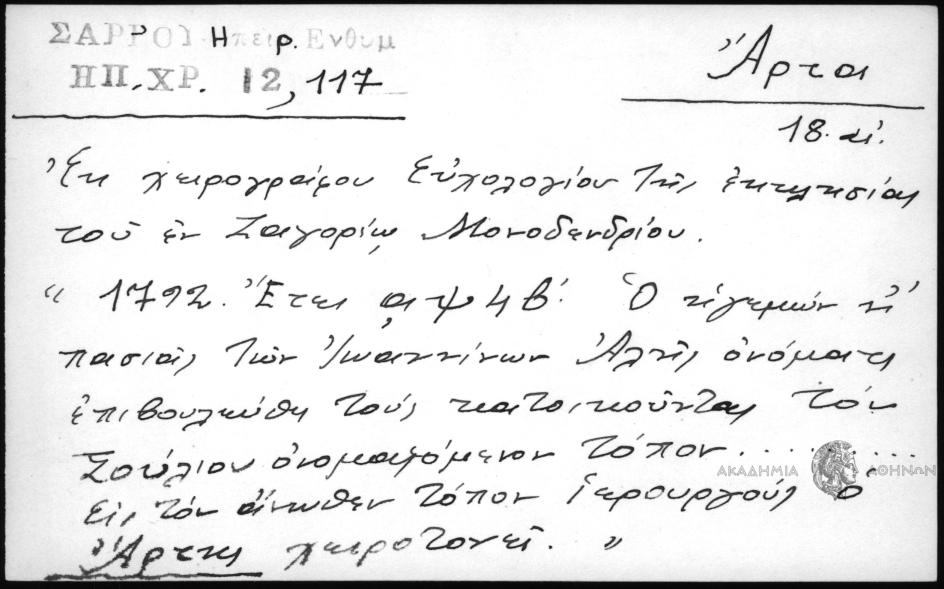 ΣΑΡΡΟΥ Ηπειρ. Ενθυμ
ΗΠ. ΧΡ. 12, 117
Ἄρτα
18. αἰ.
Ἐκ χειρογράφου Εὐχολογίου τῆς ἐκκλησίας
τοῦ ἐν Ζαγορίῳ Μονοδενδρίου.
" 1792. Ἔτει αψ4β΄. Ὁ ἡγεμών κ'
πασιᾶς τῶν Ἰωαννίνων Ἀλῆς ὀνόματι
ἐπιβουλεύθη τούς κατοικοῦντας τόν
Σούλιον ὀνομαζόμενον τόπον.......
Εἰς τόν ἄνωθεν τόπον ἱερουργούς ὁ
Ἄρτης χειροτονεῖ. "
ΑΚΑΔΗΜΙΑ ΑΘΗΝΩΝ